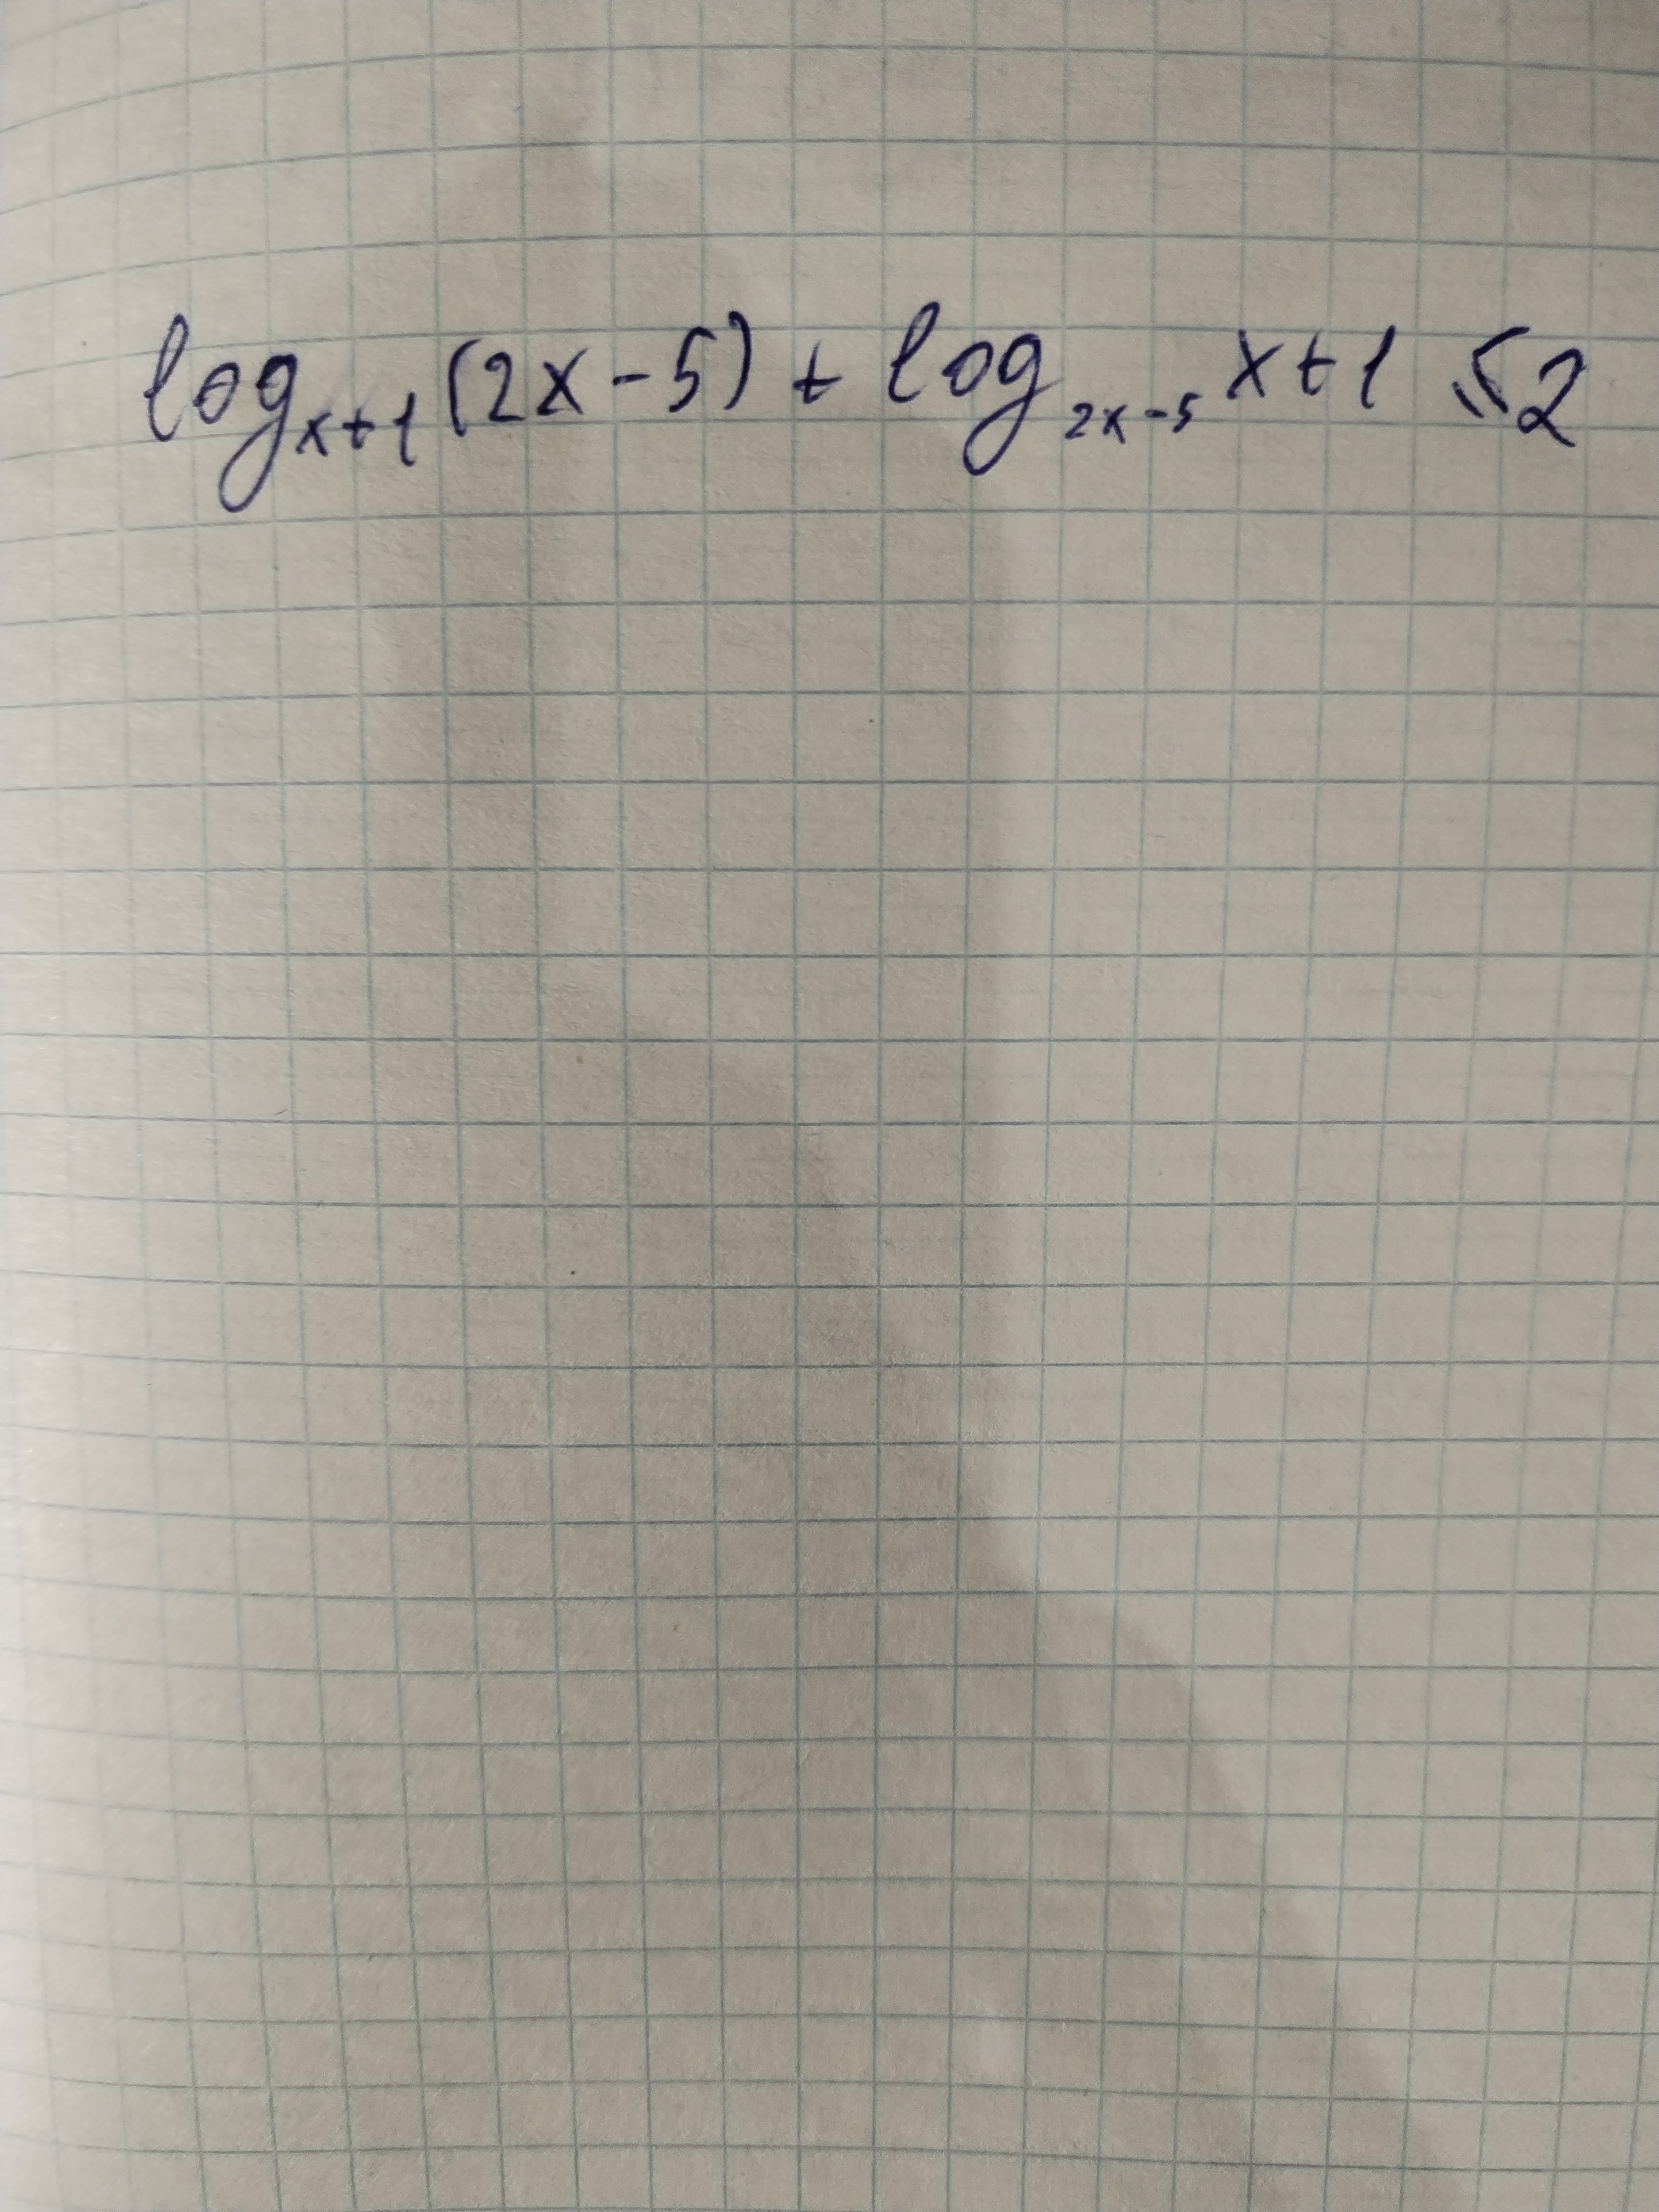 log_{x+1} (2x-5) + log_{2x-5} x+1 ≤ 2